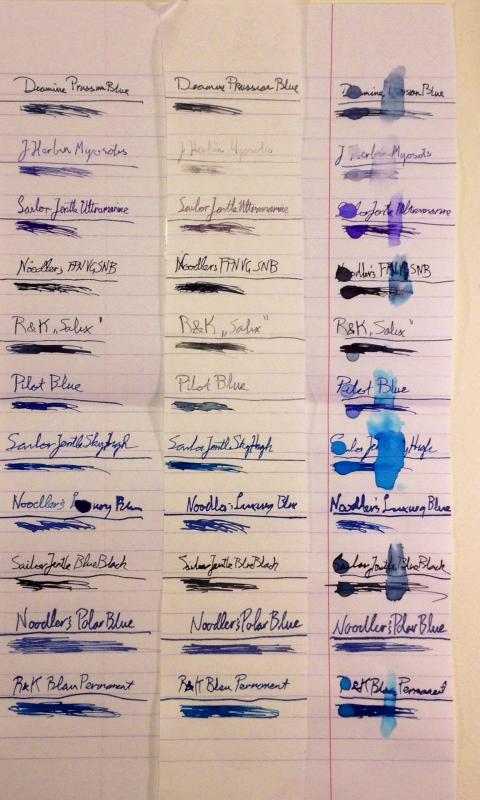 Diamine Prussian Blue
J Herbin Myosotis
Sailor Jentle Ultramarine
Noodlers FFNVGSNB
R&K „Salix"
Pilot Blue
Sailor Jentle Sky High
Noodler's Luxury Blue
Sailor Jentle Blue Black
Noodler's Polar Blue
R&K Blau Permanent
Diamine Prussian Blue
J Herbin Myosotis
Sailor Jentle Ultramarine
Noodlers FFNVGSNB
R&K „Salix"
Pilot Blue
Sailor Jentle Sky High
Noodler's Luxury Blue
Sailor Jentle Blue Black
Noodler's Polar Blue
R&K Blau Permanent
Diamine Prussian Blue
J Herbin Myosotis
Sailor Jentle Ultramarine
Noodler's FFNVGSNB
R&K „Salix"
Pilot Blue
Sailor Jentle Sky High
Noodler's Luxury Blue
Sailor Jentle Blue Black
Noodler's Polar Blue
R&K Blau Permanent